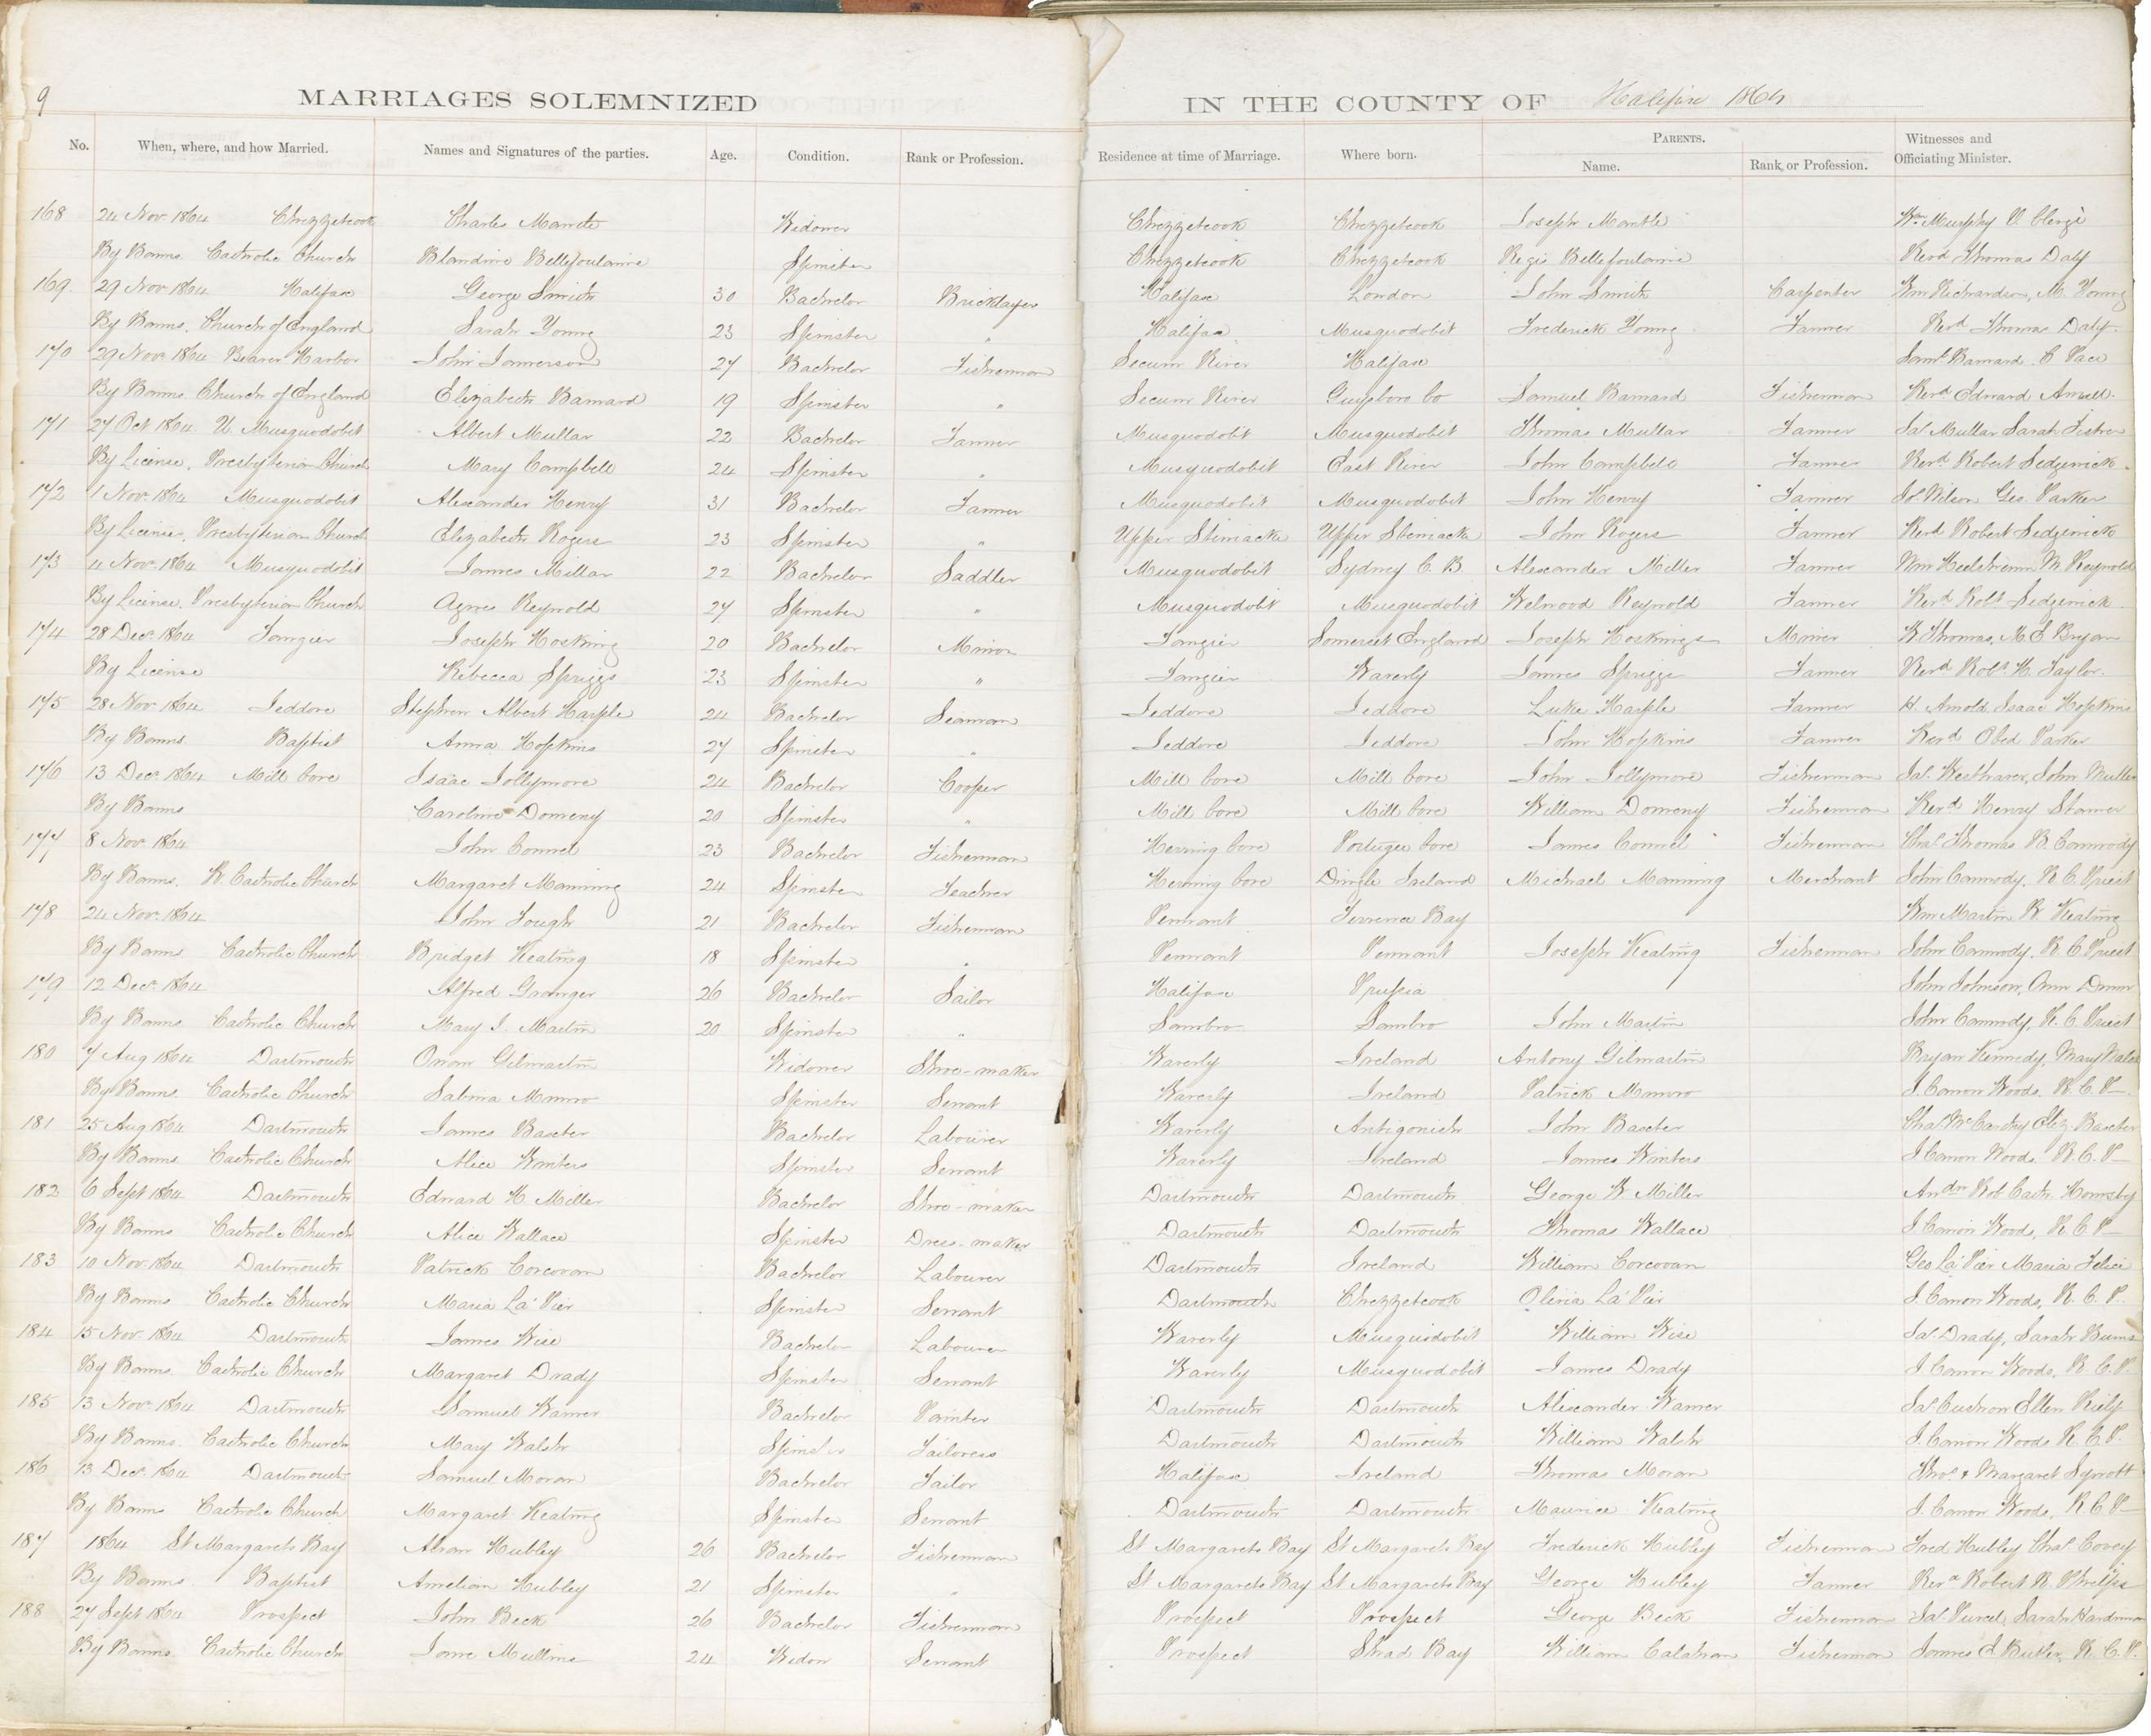 9
MARRIAGES SOLEMNIZED IN THE COUNTY OF Halifax 1864
No. When, where, and how Married. Names and Signatures of the parties. Age. Condition. Rank or Profession. Residence at time of Marriage. Where born. PARENTS. Name. Rank or Profession. Witnesses and Officiating Minister.
168 24 Nov. 1864 Chezzetcook Charles Widower Chezzetcook Chezzetcook Joseph Wm Murphy V. Clergé
By Banns Catholic Church Blandine Bellefoulaine Spinster Chezzetcook Chezzetcook Regis Bellefoulaine Revd Thomas Daly
169. 29 Nov 1864 Halifax George Smith 30 Bachelor Bricklayer Halifax London John Smith Carpenter Wm Richardson, M. Young
By Banns. Church of England Sarah Young 23 Spinster " Halifax Musquodobit Frederick Young Farmer Revd Thomas Daly.
170 29 Nov. 1864 Beaver Harbor John Jamerson 27 Bachelor Fisherman Secum River Halifax Saml Barnard C Pace
By Banns Church of England Elizabeth Barnard 19 Spinster " Secum River Guysboro Co Samuel Barnard Fisherman Revd Edward Ansell.
171 27 Oct 1864 U. Musquodobit Albert Mullar 22 Bachelor Farmer Musquodobit Musquodobit Thomas Mullar Farmer Jas Mullar Sarah Fisher
By License, Presbyterian Church Mary Campbell 24 Spinster " Musquodobit East River John Campbell Farmer Revd Robert Sedgewick.
172 1 Nov. 1864 Musquodobit Alexander Henry 31 Bachelor Farmer Musquodobit Musquodobit John Henry Farmer Js. Wilson Geo. Parker
By License, Presbyterian Church Elizabeth Rogers 23 Spinster " Upper Steiwacke Upper Steiwacke John Rogers Farmer Revd Robert Sedgewick
173 4 Nov. 1864 Musquodobit James Millar 22 Bachelor Saddler Musquodobit Sydney C. B. Alexander Miller Farmer Wm M Reynold
By License. Presbyterian Church Agnes Reynold 27 Spinster " Musquodobit Musquodobit Welwood Reynold Farmer Revd Robt Sedgewick
174 28 Decr 1864 Tangier Joseph Hosking 20 Bachelor Minor Tangier Somerset England Joseph Hoskings Miner W. Thomas, M. E Bryan
By License Rebecca Spriggs 23 Spinster " Tangier Waverly James Spriggs Farmer Revd Robt H. Taylor.
175 28 Nov. 1864 Jeddore Stephen Albert Harple 24 Bachelor Seaman Jeddore Jeddore Luke Harple Farmer H. Arnold Isaac Hopkins
By Banns. Baptist Anna Hopkins 27 Spinster " Jeddore Jeddore John Hopkins Farmer Revd Obed Parker
176 13 Decr 1864 Mill Cove Isaac Jollymore 24 Bachelor Cooper Mill Cove Mill Cove John Jollymore Fisherman Jas. Westhaver, John Mullen
By Banns Caroline Domeny 20 Spinster " Mill Cove Mill Cove William Domeny Fisherman Revd Henry Stamer
177 8 Nov. 1864 John Connel 23 Bachelor Fisherman Herring Cove Portugee Cove James Connel Fisherman Chas Thomas B. Conmrody
By Banns. R. Catholic Church Margaret Manning 24 Spinster Teacher Herring Cove Dingle Ireland Michael Manning Merchant John Carmody, R. C. Priest
178 24 Nov. 1864 John Tough 21 Bachelor Fisherman Pennant Terrence Bay Wm Martin B. Keating
By Banns Catholic Church Bridget Keating 18 Spinster " Pennant Pennant Joseph Keating Fisherman John Carmody, R. C. Priest
179 12 Decr 1864 Alfred Granger 26 Bachelor Sailor Halifax Prussia John Johnson, Ann Dunn
By Banns Catholic Church Mary J. Martin 20 Spinster " Sambro Sambro John Martin John Carmody, R. C. Priest
180 7 Aug 1864 Dartmouth Owen Gilmartin Widower Shoe-maker Waverly Ireland Antony Gilmartin Bryan Kennedy, Mary Walsh
By Banns. Catholic Church Sabina Munro Spinster Servant Waverly Ireland Patrick Munro J. Canon Woods. R. C. P.
181 25 Aug 1864 Dartmouth James Baxter Bachelor Labourer Waverly Antigonish John Baxter Chas McCarthy Eliz Baxter
By Banns Catholic Church Alice Winters Spinster Servant Waverly Ireland James Winters J Canon Woods. R. C. P.
182 6 Sept 1864 Dartmouth Edward H. Miller Bachelor Shoe-maker Dartmouth Dartmouth George W Miller Andw Rob Cath. Hornsby
By Banns Catholic Church Alice Wallace Spinster Dress-maker Dartmouth Dartmouth Thomas Wallace J. Canon Woods, R. C. P.
183 10 Nov. 1864 Dartmouth Patrick Corcoran Bachelor Labourer Dartmouth Ireland William Corcoran Geo La'Pier Maria Felici
By Banns Catholic Church Maria La'Pier Spinster Servant Dartmouth Chezzetcook Olivia La'Pier J. Canon Woods, R. C. P.
184 15 Nov. 1864 Dartmouth James Wise Bachelor Labourer Waverly Musquodobit William Wise Jas. Drady, Sarah Burns
By Banns. Catholic Church Margaret Drady Spinster Servant Waverly Musquodobit James Drady J. Canon Woods, R. C. P.
185 13 Nov. 1864 Dartmouth Samuel Warner Bachelor Painter Dartmouth Dartmouth Alexander Warner Jas Cushron Ellen Riely
By Banns. Catholic Church Mary Walsh Spinster Tailoress Dartmouth Dartmouth William Walsh J. Canon Woods R. C. P.
186 13 Decr 1864 Dartmouth Samuel Moran Bachelor Tailor Halifax Ireland Thomas Moran Thos & Margaret Synott
By Banns Catholic Church Margaret Keating Spinster Servant Dartmouth Dartmouth Maurice Keating J. Canon Woods, R. C. P.
187 1864 St Margarets Bay Abram Hubley 26 Bachelor Fisherman St Margarets Bay St Margarets Bay Frederick Hubley Fisherman Fred Hubley Chas Covey
By Banns. Baptist Ameliam Hubley 21 Spinster " St Margarets Bay St Margarets Bay George Hubley Farmer Revd Robert R. Philps
188 27 Sept 1864 Prospect John Beck 26 Bachelor Fisherman Prospect Prospect George Beck Fisherman Jas Purcel, Sarah Hardiman
By Banns. Catholic Church Jane Mullins 24 Widow Servant Prospect Shad Bay William Calahan Fisherman James E Butler, R. C. P.